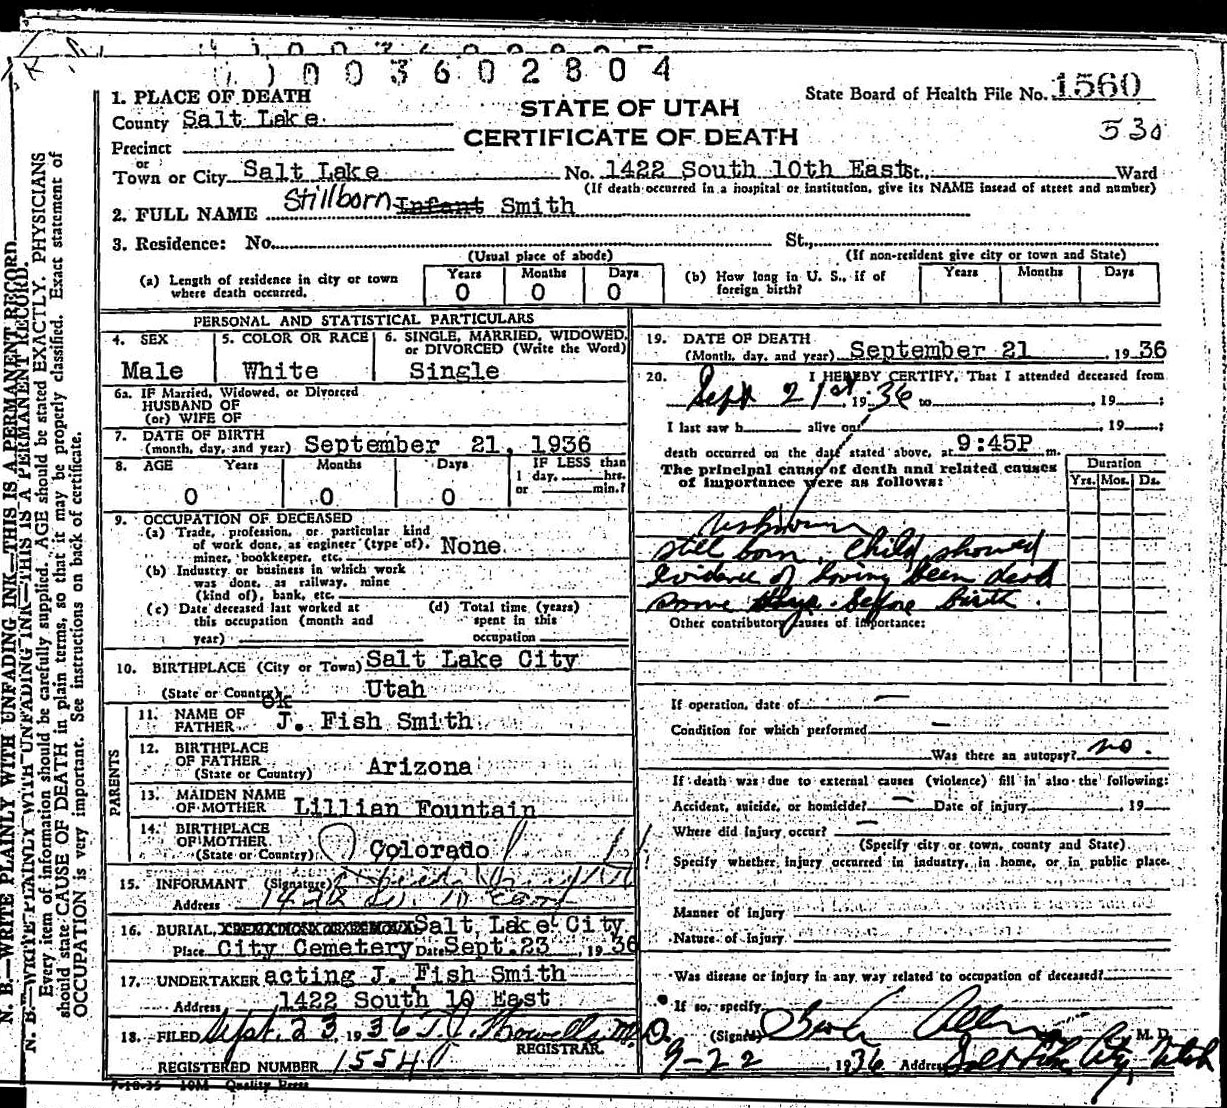 1003602804
State Board of Health File No. 1560
530
STATE OF UTAH
CERTIFICATE OF DEATH
1. PLACE OF DEATH
County Salt Lake.
Precinct
or
Town or City Salt Lake No. 1422 South 10th East St., Ward
(If death occurred in a hospital or institution, give its NAME insead of street and number)
2. FULL NAME Stillborn Infant Smith
3. Residence: No. St.,
(Usual place of abode) (If non-resident give city or town and State)
(a) Length of residence in city or town where death occurred. Years 0 Months 0 Days 0
(b) How long in U. S., if of foreign birth? Years Months Days
PERSONAL AND STATISTICAL PARTICULARS
4. SEX Male
5. COLOR OR RACE White
6. SINGLE, MARRIED, WIDOWED, or DIVORCED (Write the Word) Single
6a. IF Married, Widowed, or Divorced
HUSBAND OF
(or) WIFE OF
7. DATE OF BIRTH
(month, day, and year) September 21, 1936
8. AGE Years 0 Months 0 Days 0 IF LESS than 1 day, hrs. or min.?
9. OCCUPATION OF DECEASED
(a) Trade, profession, or particular kind of work done, as engineer (type of), miner, bookkeeper, etc. None
(b) Industry or business in which work was done, as railway, mine (kind of), bank, etc.
(c) Date deceased last worked at this occupation (month and year)
(d) Total time (years) spent in this occupation
10. BIRTHPLACE (City or Town) Salt Lake City
(State or Country) Utah
ok
PARENTS
11. NAME OF FATHER J. Fish Smith
12. BIRTHPLACE OF FATHER (State or Country) Arizona
13. MAIDEN NAME OF MOTHER Lillian Fountain
14. BIRTHPLACE OF MOTHER (State or Country) Colorado
15. INFORMANT (Signature)
Address
16. BURIAL, Salt Lake City
Place City Cemetery Date Sept. 23, 1936
17. UNDERTAKER acting J. Fish Smith
Address 1422 South 10 East
18. FILED Sept. 23 1936 REGISTRAR.
REGISTERED NUMBER 1554
7-10-35 10M Quality Press
19. DATE OF DEATH
(Month, day, and year) September 21, 1936
20. I HEREBY CERTIFY, That I attended deceased from
Sept 21st, 1936 to , 19 ;
I last saw h alive on , 19 ;
death occurred on the date stated above, at 9:45P m.
The principal cause of death and related causes of importance were as follows:
Duration
Yrs. Mos. Ds.
Unknown
still born, child showed
evidence of having been dead
some days before birth.
Other contributory causes of importance:
If operation, date of —
Condition for which performed —
Was there an autopsy? no.
If death was due to external causes (violence) fill in also the following:
Accident, suicide, or homicide? — Date of injury , 19
Where did injury occur? —
(Specify city or town, county and State)
Specify whether injury occurred in industry, in home, or in public place.
Manner of injury
Nature of injury
Was disease or injury in any way related to occupation of deceased?
If so, specify
(Signed) M. D.
9-22 1936 Address Salt Lake City, Utah
N. B.—WRITE PLAINLY WITH UNFADING INK—THIS IS A PERMANENT RECORD.
N. B.—WRITE PLAINLY WITH UNFADING INK—THIS IS A PERMANENT RECORD.
Every item of information should be carefully supplied. AGE should be stated EXACTLY. PHYSICIANS
should state CAUSE OF DEATH in plain terms, so that it may be properly classified. Exact statement of
OCCUPATION is very important. See instructions on back of certificate.